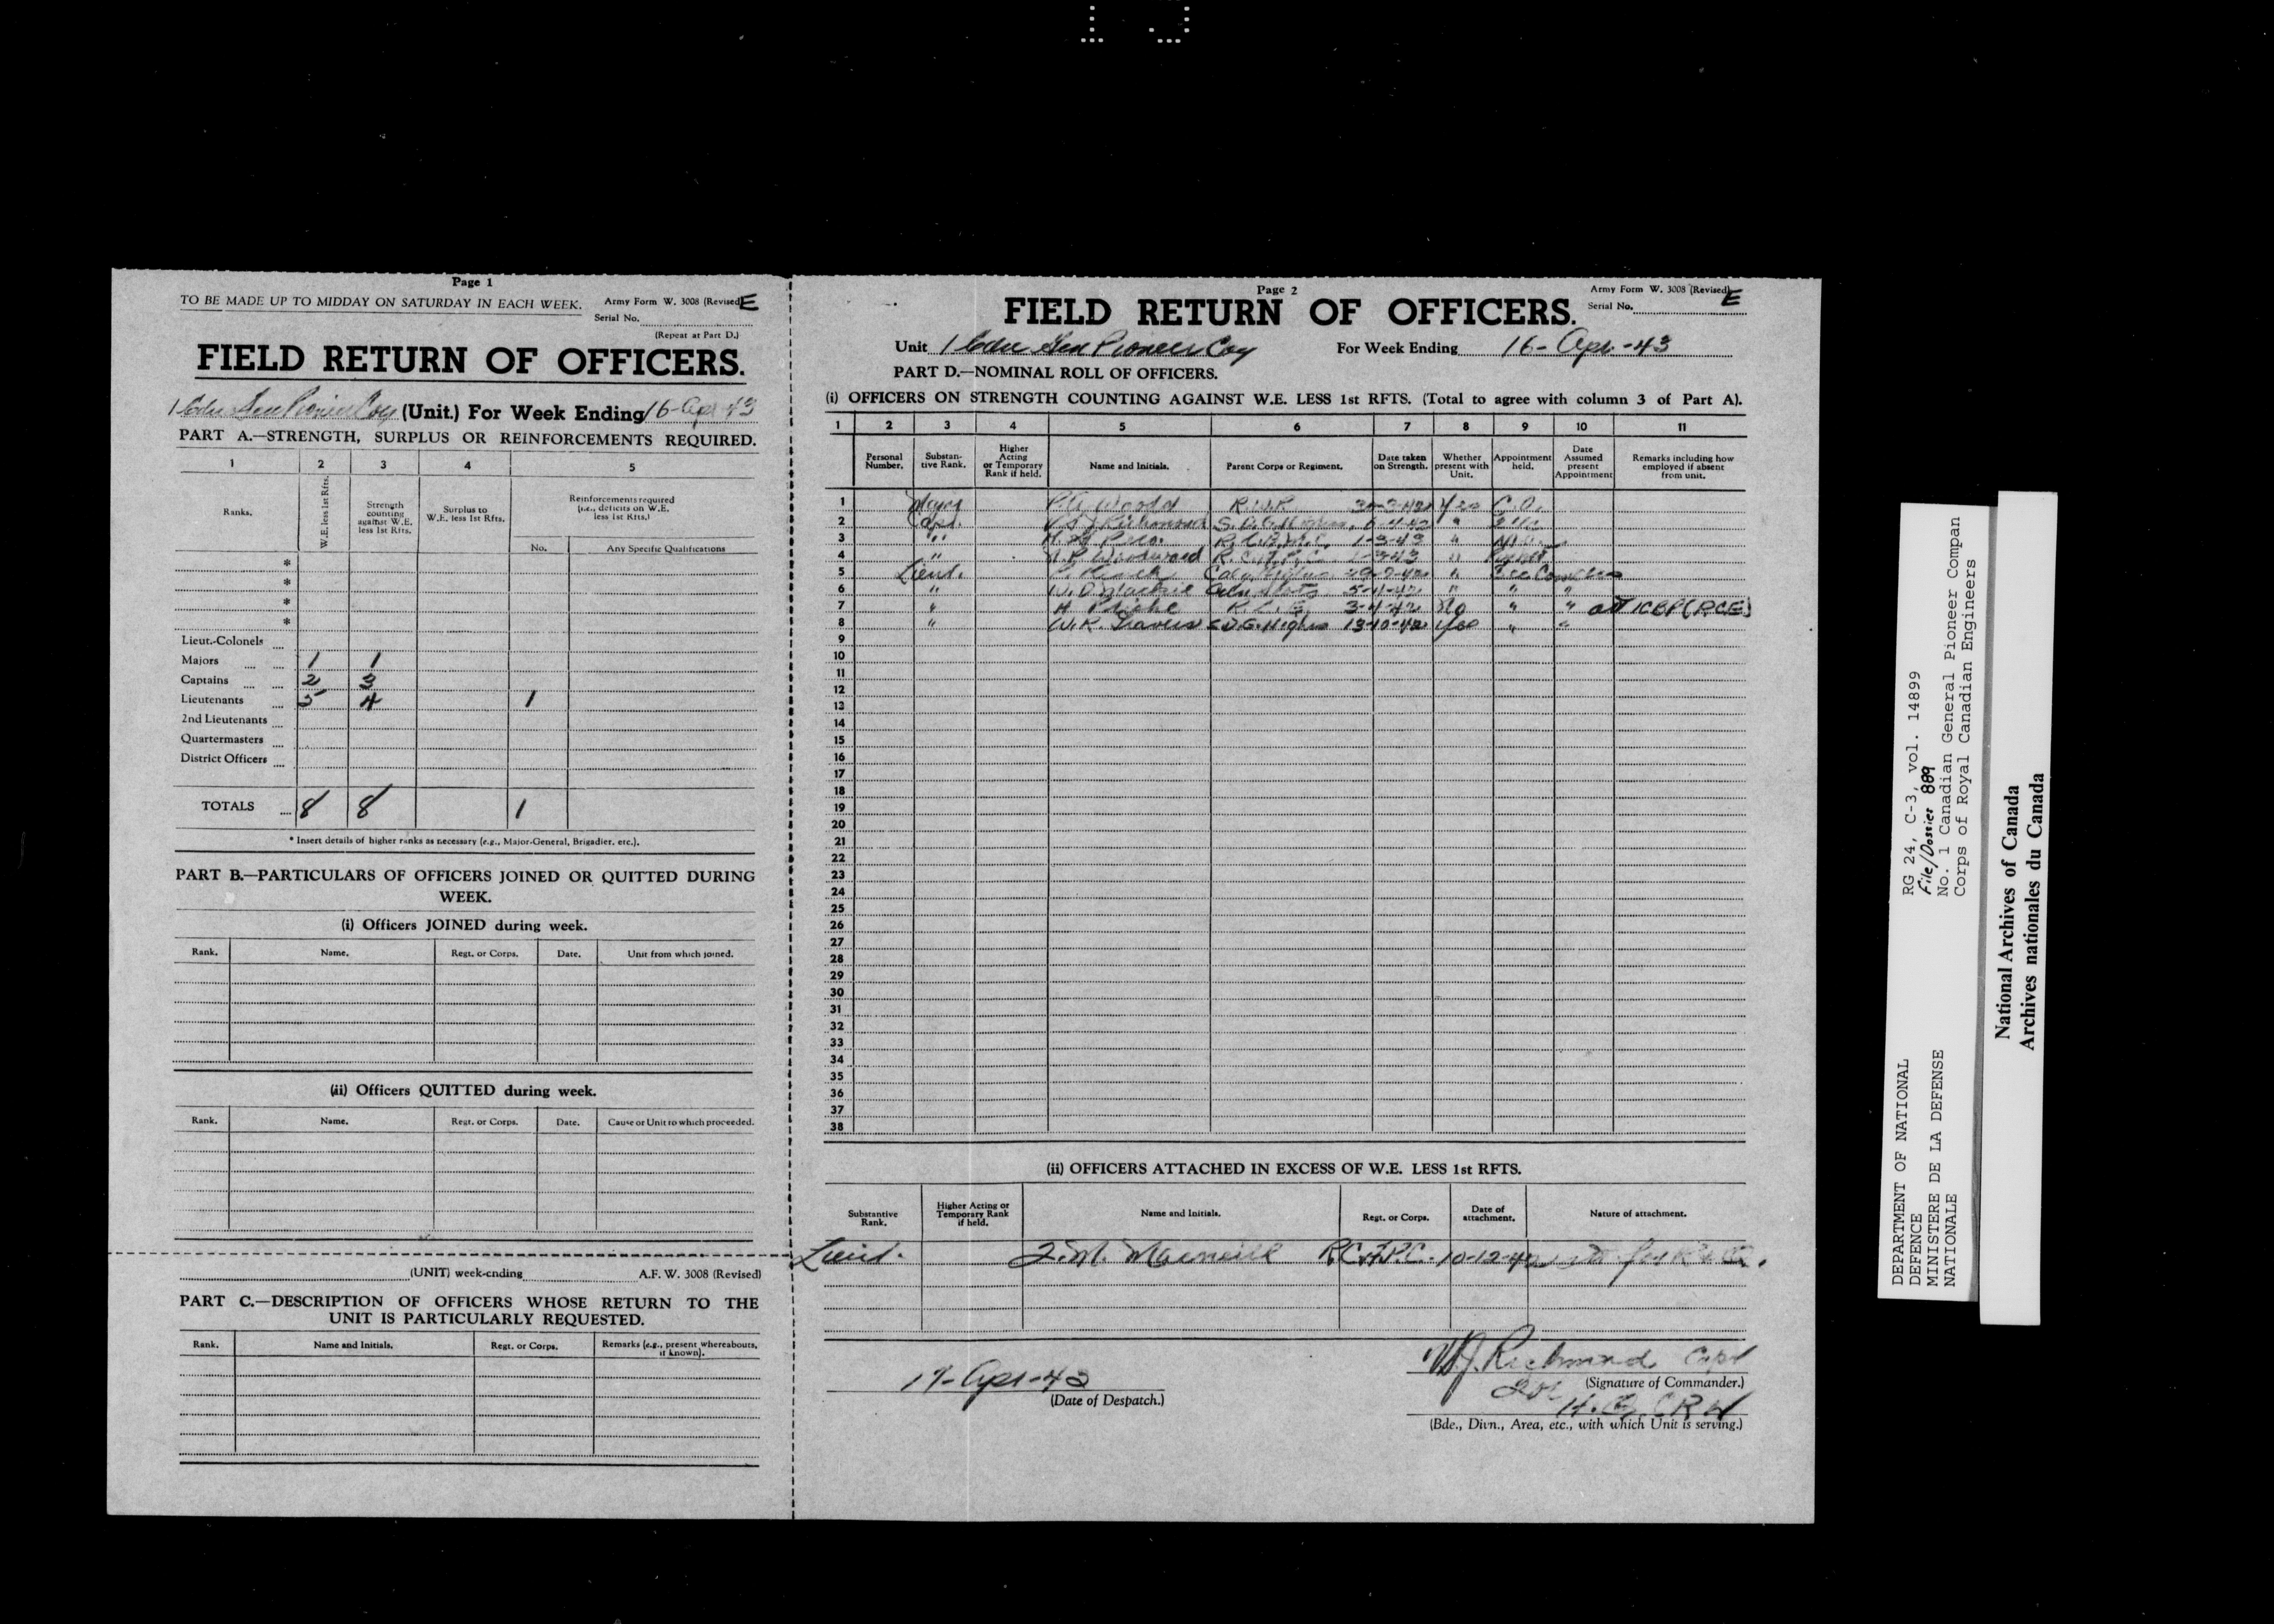 Page 1
TO BE MADE UP TO MIDDAY ON SATURDAY IN EACH WEEK.
Army Form W. 3008 (Revised) E
Serial No.
(Repeat at Part D.)
FIELD RETURN OF OFFICERS.
1 Cdn Gen Pioneer Coy (Unit.) For Week Ending 16-Apr-43
PART A.—STRENGTH, SURPLUS OR REINFORCEMENTS REQUIRED.
1 2 3 4 5
Ranks.
W.E. less 1st Rfts.
Strength counting against W.E. less 1st Rfts.
Surplus to W.E. less 1st Rfts.
Reinforcements required (i.e., deficits on W.E. less 1st Rfts.)
No. Any Specific Qualifications
*
*
*
*
Lieut.-Colonels
Majors 1 1
Captains 2 3
Lieutenants 5 4 1
2nd Lieutenants
Quartermasters
District Officers
TOTALS 8 8 1
* Insert details of higher ranks as necessary (e.g., Major-General, Brigadier, etc.).
PART B.—PARTICULARS OF OFFICERS JOINED OR QUITTED DURING
WEEK.
(i) Officers JOINED during week.
Rank. Name. Regt. or Corps. Date. Unit from which joined.
(ii) Officers QUITTED during week.
Rank. Name. Regt. or Corps. Date. Cause or Unit to which proceeded.
(UNIT) week-ending A.F. W. 3008 (Revised)
PART C.—DESCRIPTION OF OFFICERS WHOSE RETURN TO THE
UNIT IS PARTICULARLY REQUESTED.
Rank. Name and Initials. Regt. or Corps. Remarks (e.g., present whereabouts, if known).
Page 2
Army Form W. 3008 (Revised) E
FIELD RETURN OF OFFICERS.
Serial No.
Unit 1 Cdn Gen Pioneer Coy For Week Ending 16-Apr-43
PART D.—NOMINAL ROLL OF OFFICERS.
(i) OFFICERS ON STRENGTH COUNTING AGAINST W.E. LESS 1st RFTS. (Total to agree with column 3 of Part A).
1 2 3 4 5 6 7 8 9 10 11
Personal Number.
Substantive Rank.
Higher Acting or Temporary Rank if held.
Name and Initials.
Parent Corps or Regiment.
Date taken on Strength.
Whether present with Unit.
Appointment held.
Date Assumed present Appointment
Remarks including how employed if absent from unit.
1 Major Yes C.O.
2 Capt. Richmond S.D.&G. Highrs. "
3 " 1-3-43 "
4 " Woodward 1-3-43 "
5 Lieut. "
6 " W. D. Mackie 5-4-42 " " "
7 " H. R.C.E. 3-4-42 No " " att 1CBP (RCE)
8 " W.R. S.D.G. Highrs 13-10-42 Yes " "
9
10
11
12
13
14
15
16
17
18
19
20
21
22
23
24
25
26
27
28
29
30
31
32
33
34
35
36
37
38
(ii) OFFICERS ATTACHED IN EXCESS OF W.E. LESS 1st RFTS.
Substantive Rank.
Higher Acting or Temporary Rank if held.
Name and Initials.
Regt. or Corps.
Date of attachment.
Nature of attachment.
Lieut. Macneill 10-12-42
Richmond Capt
17-Apr-43 (Signature of Commander.)
(Date of Despatch.)
(Bde., Divn., Area, etc., with which Unit is serving.)
DEPARTMENT OF NATIONAL
DEFENCE
MINISTERE DE LA DEFENSE
NATIONALE
RG 24, C-3, vol. 14899
File/Dossier 889
No. 1 Canadian General Pioneer Compan
Corps of Royal Canadian Engineers
National Archives of Canada
Archives nationales du Canada